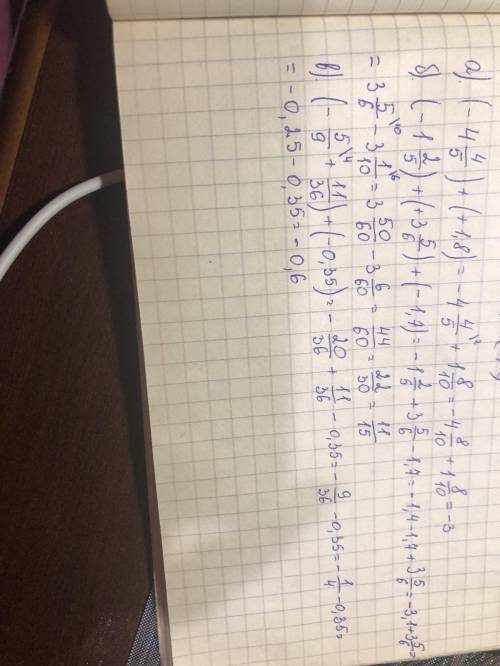 а). (-4 4/5) + (+1,8) = -4 4/5 \2 + 1 8/10 = -4 8/10 + 1 8/10 = -3
б). (-1 2/5) + (+3 5/6) + (-1,7) = -1 2/5 + 3 5/6 - 1,7 = -1,4-1,7+3 5/6 = -3,1+3 5/6 =
= 3 5/6 \10 - 3 1/10 \6 = 3 50/60 - 3 6/60 = 44/60 = 22/30 = 11/15
в). (- 5/9 \4 + 11/36) + (-0,35) = - 20/36 + 11/36 - 0,35 = - 9/36 - 0,35 = - 1/4 - 0,35 =
= - 0,25 - 0,35 = - 0,6